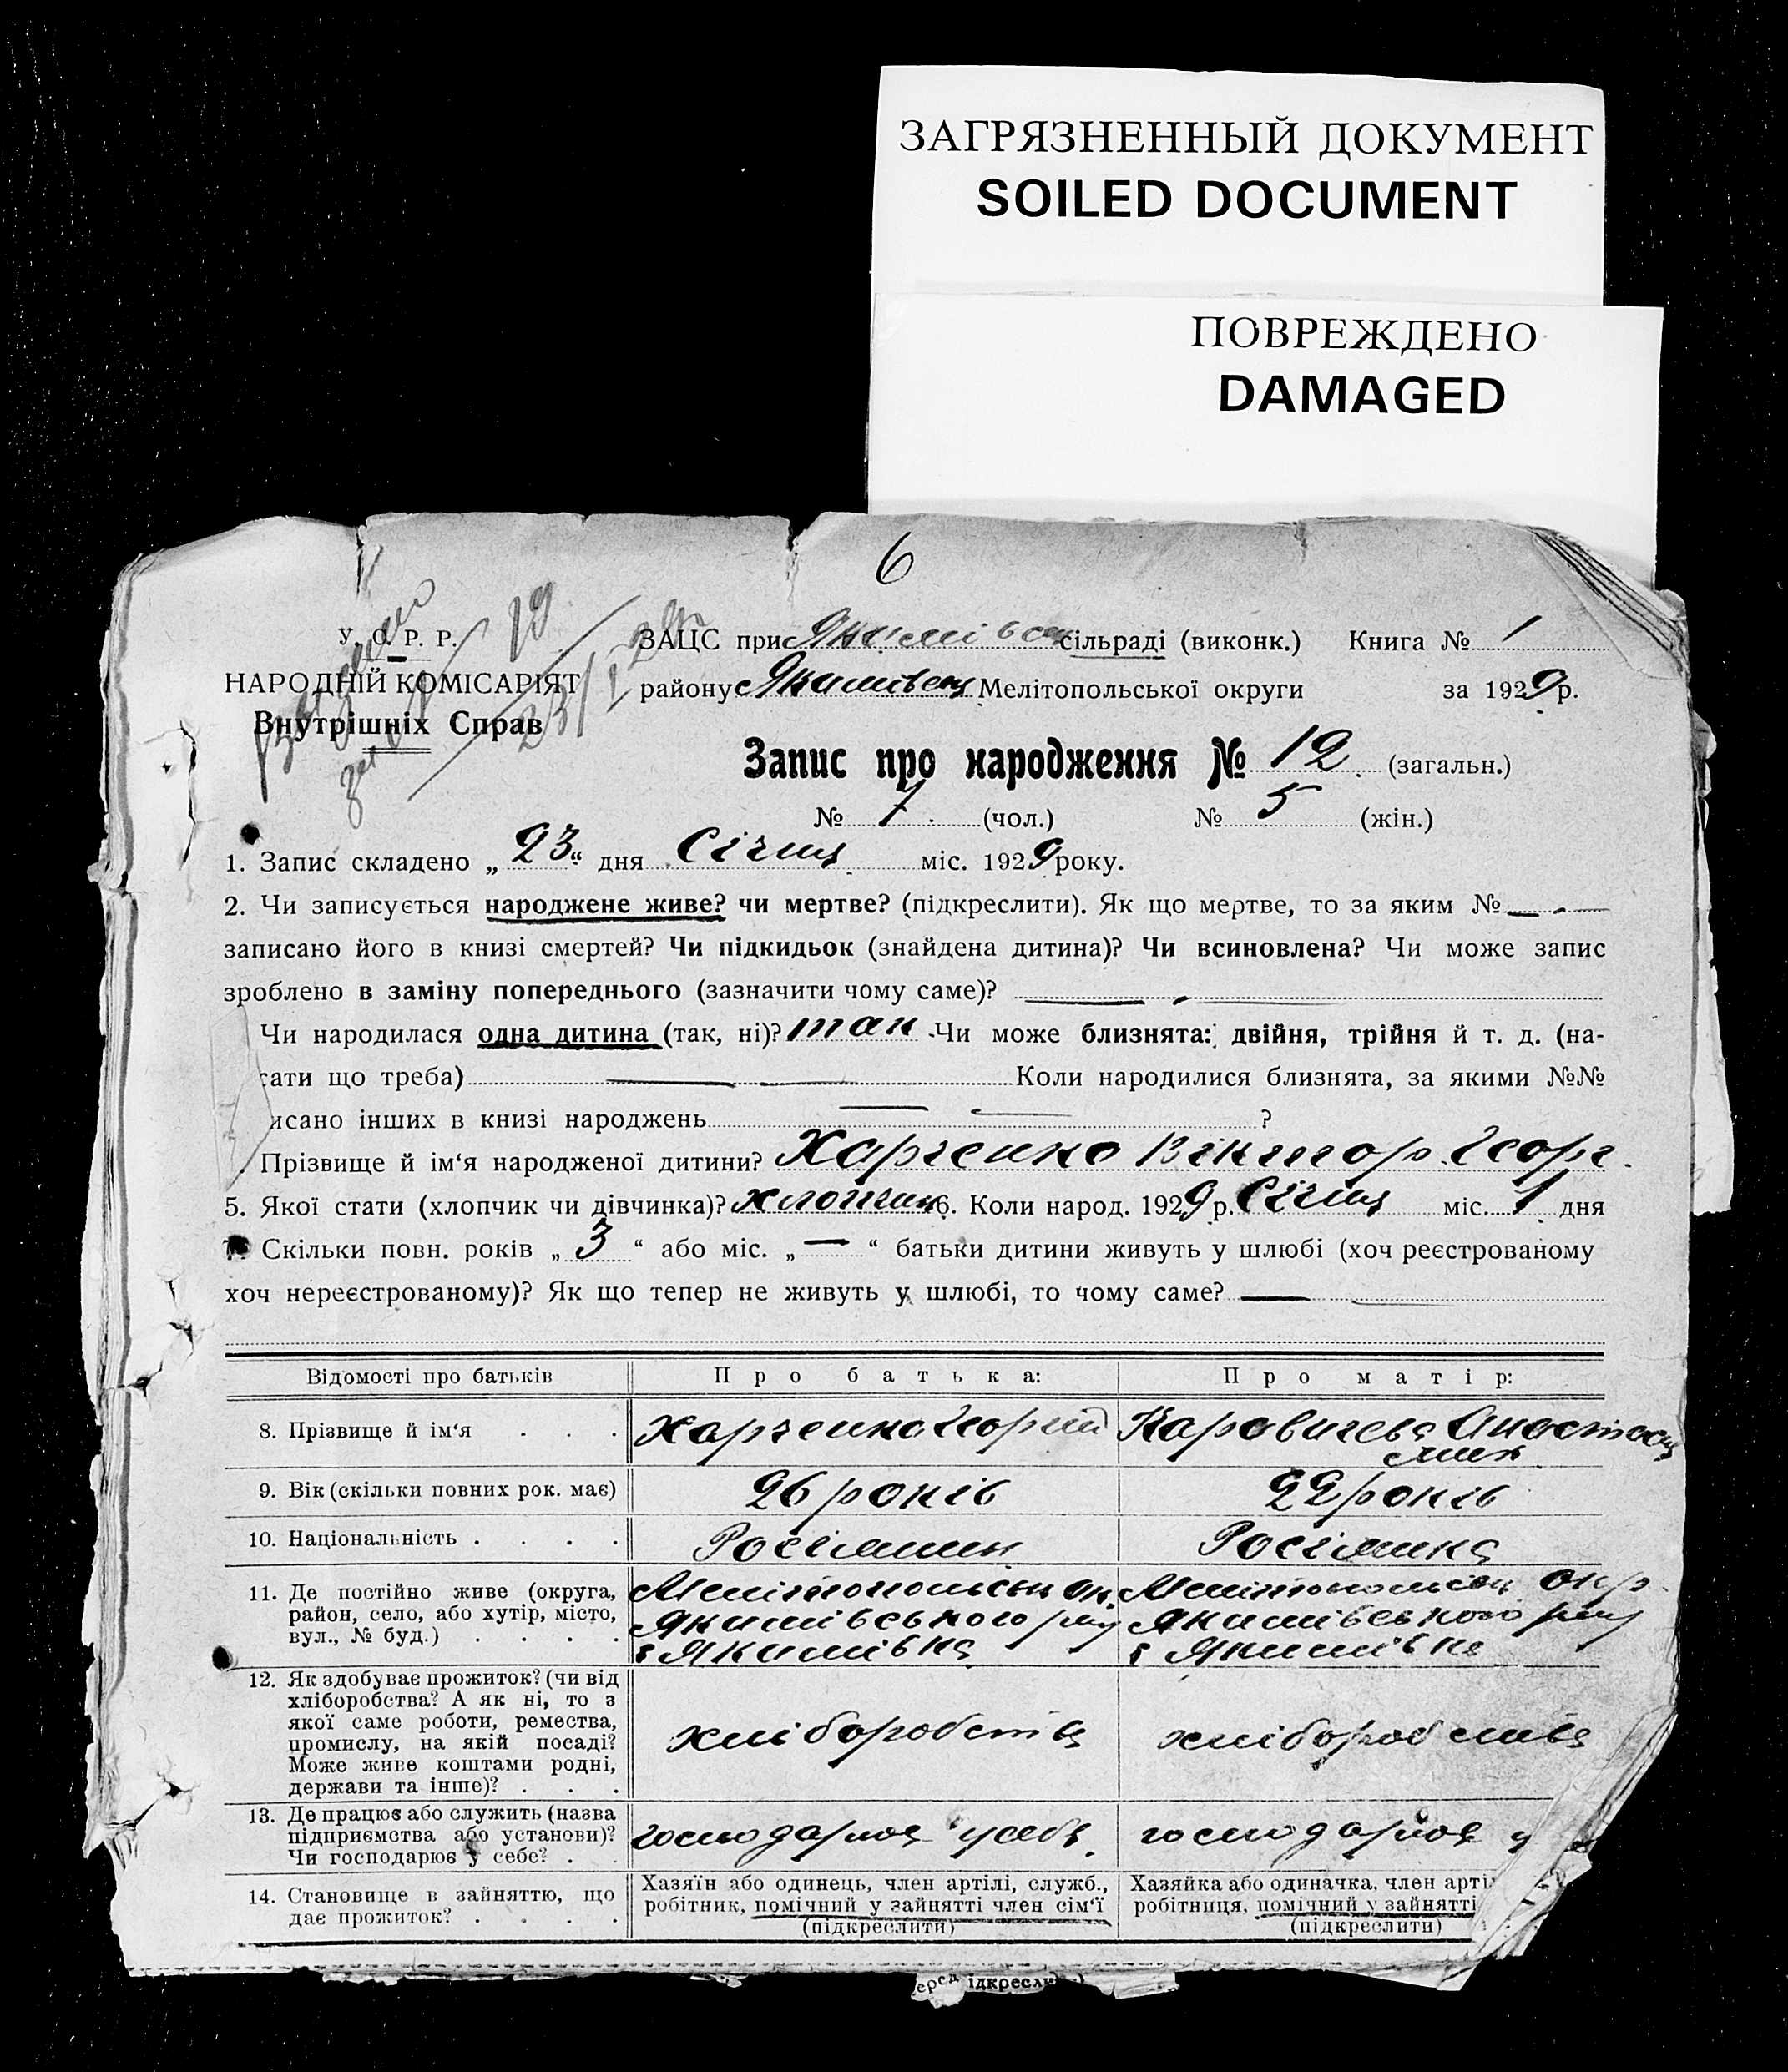 ЗАГРЯЗНЕННЫЙ ДОКУМЕНТ
SOILED DOCUMENT
ПОВРЕЖДЕНО
DAMAGED
6
У. С. Р. Р.
НАРОДНІЙ КОМІСАРІЯТ
Внутрішніх Справ
19
23/I
ЗАЦС при Якимівськ сільраді (виконк.) Книга № 1
району Якимівськ Мелітопольської округи за 1929 р.
Запис про народження № 12 (загальн.)
№ 7 (чол.) № 5 (жін.)
1. Запис складено „ 23 “ дня Січня міс. 1929 року.
2. Чи записується народжене живе? чи мертве? (підкреслити). Як що мертве, то за яким № —
записано його в книзі смертей? Чи підкидьок (знайдена дитина)? Чи всиновлена? Чи може запис
зроблено в заміну попереднього (зазначити чому саме)? —
Чи народилася одна дитина (так, ні)? так Чи може близнята: двійня, трійня й т. д. (на-
сати що треба) — Коли народилися близнята, за якими №№
исано інших в книзі народжень — ?
Прізвище й ім‘я народженої дитини? Харченко Віктор Георг.
5. Якої стати (хлопчик чи дівчинка)? хлопчик 6. Коли народ. 1929 р. Січня міс. 1 дня
7. Скільки повн. років „ 3 “ або міс. „ — “ батьки дитини живуть у шлюбі (хоч реєстрованому
хоч нереєстрованому)? Як що тепер не живуть у шлюбі, то чому саме? —
Відомості про батьків Про батька: Про матір:
8. Прізвище й ім‘я . . . Харченко Георгий
9. Вік (скільки повних рок. має) 26 років 22 років
10. Національність . . . . Росіянин Росіянка
11. Де постійно живе (округа, район, село, або хутір, місто, вул., № буд.) . . . .
Мелітопольськ ок. Мелітопольськ окр.
Якимівського рай Якимівського рай
с Якимівка с Якимівка
12. Як здобуває прожиток? (чи від
хліборобства? А як ні, то з
якої саме роботи, ремества,
промислу, на якій посаді?
Може живе коштами родні,
держави та інше)? . . .
хліборобства хліборобства
13. Де працює або служить (назва
підприємства або установи)?
Чи господарює у себе? . .
господарює у себе. господарює у
14. Становище в зайняттю, що
дає прожиток? . . . .
Хазяїн або одинець, член артілі, служб.,
робітник, помічний у зайнятті член сім‘ї
(підкреслити)
Хазяйка або одиначка, член арті
робітниця, помічний у зайнятті
(підкреслити)
ідкресли